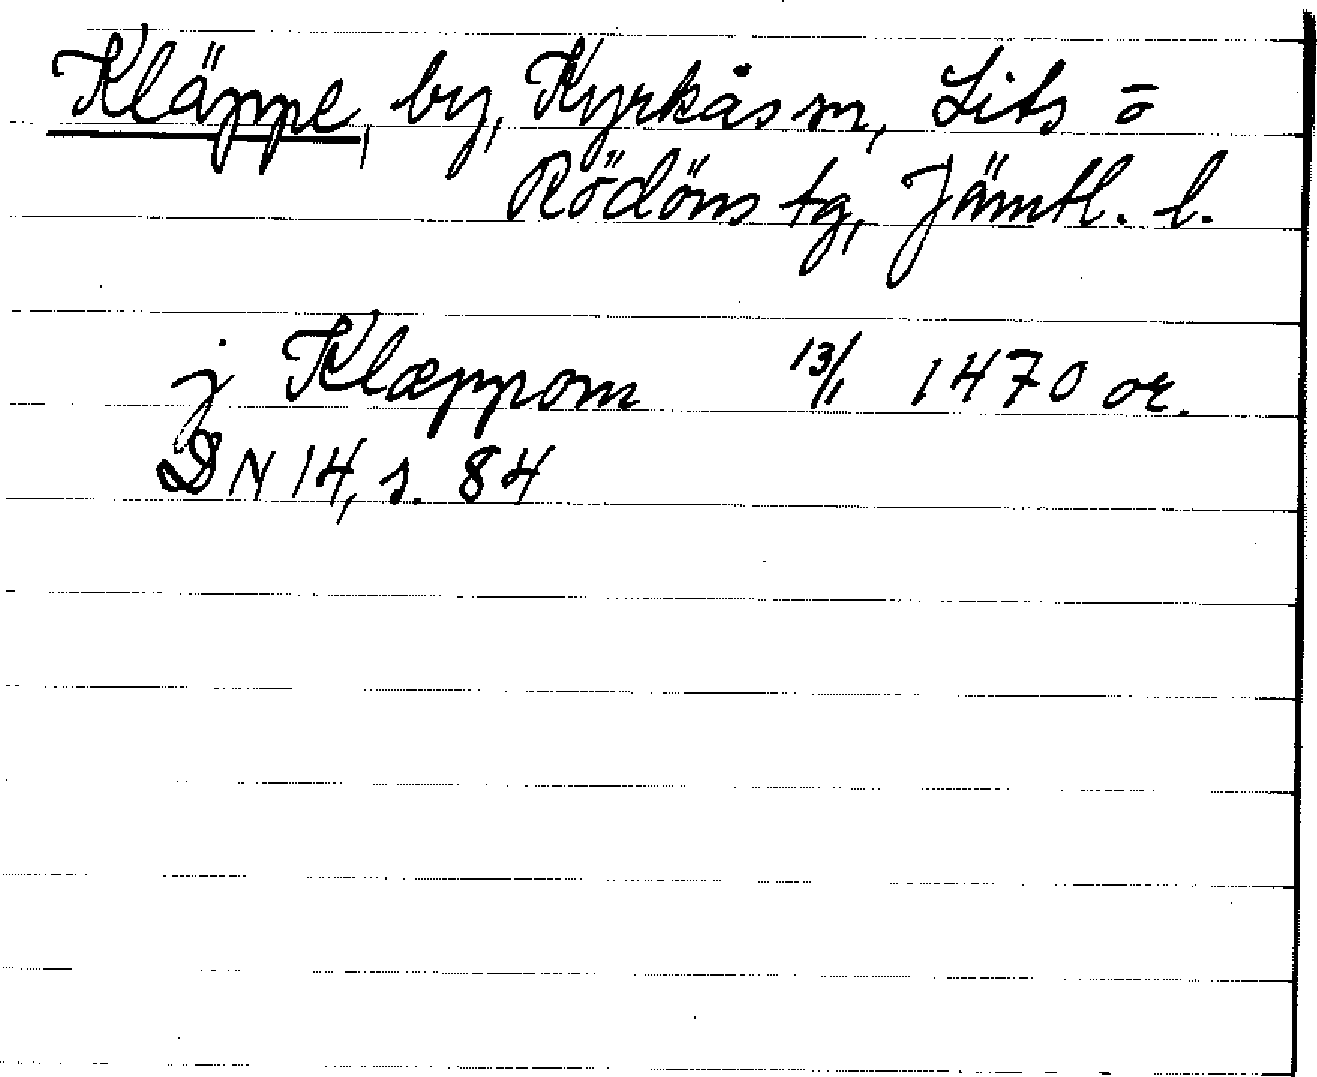 Kläppe, by, Kyrkås sn, Lits o
Rödöns tg, Jämtl. l.
j Klæppom 13/1 1470 or.
DN 14, s. 84